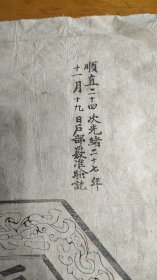 順直二十四次光緒二十七年
十一月十九日戶部獎准驗訖